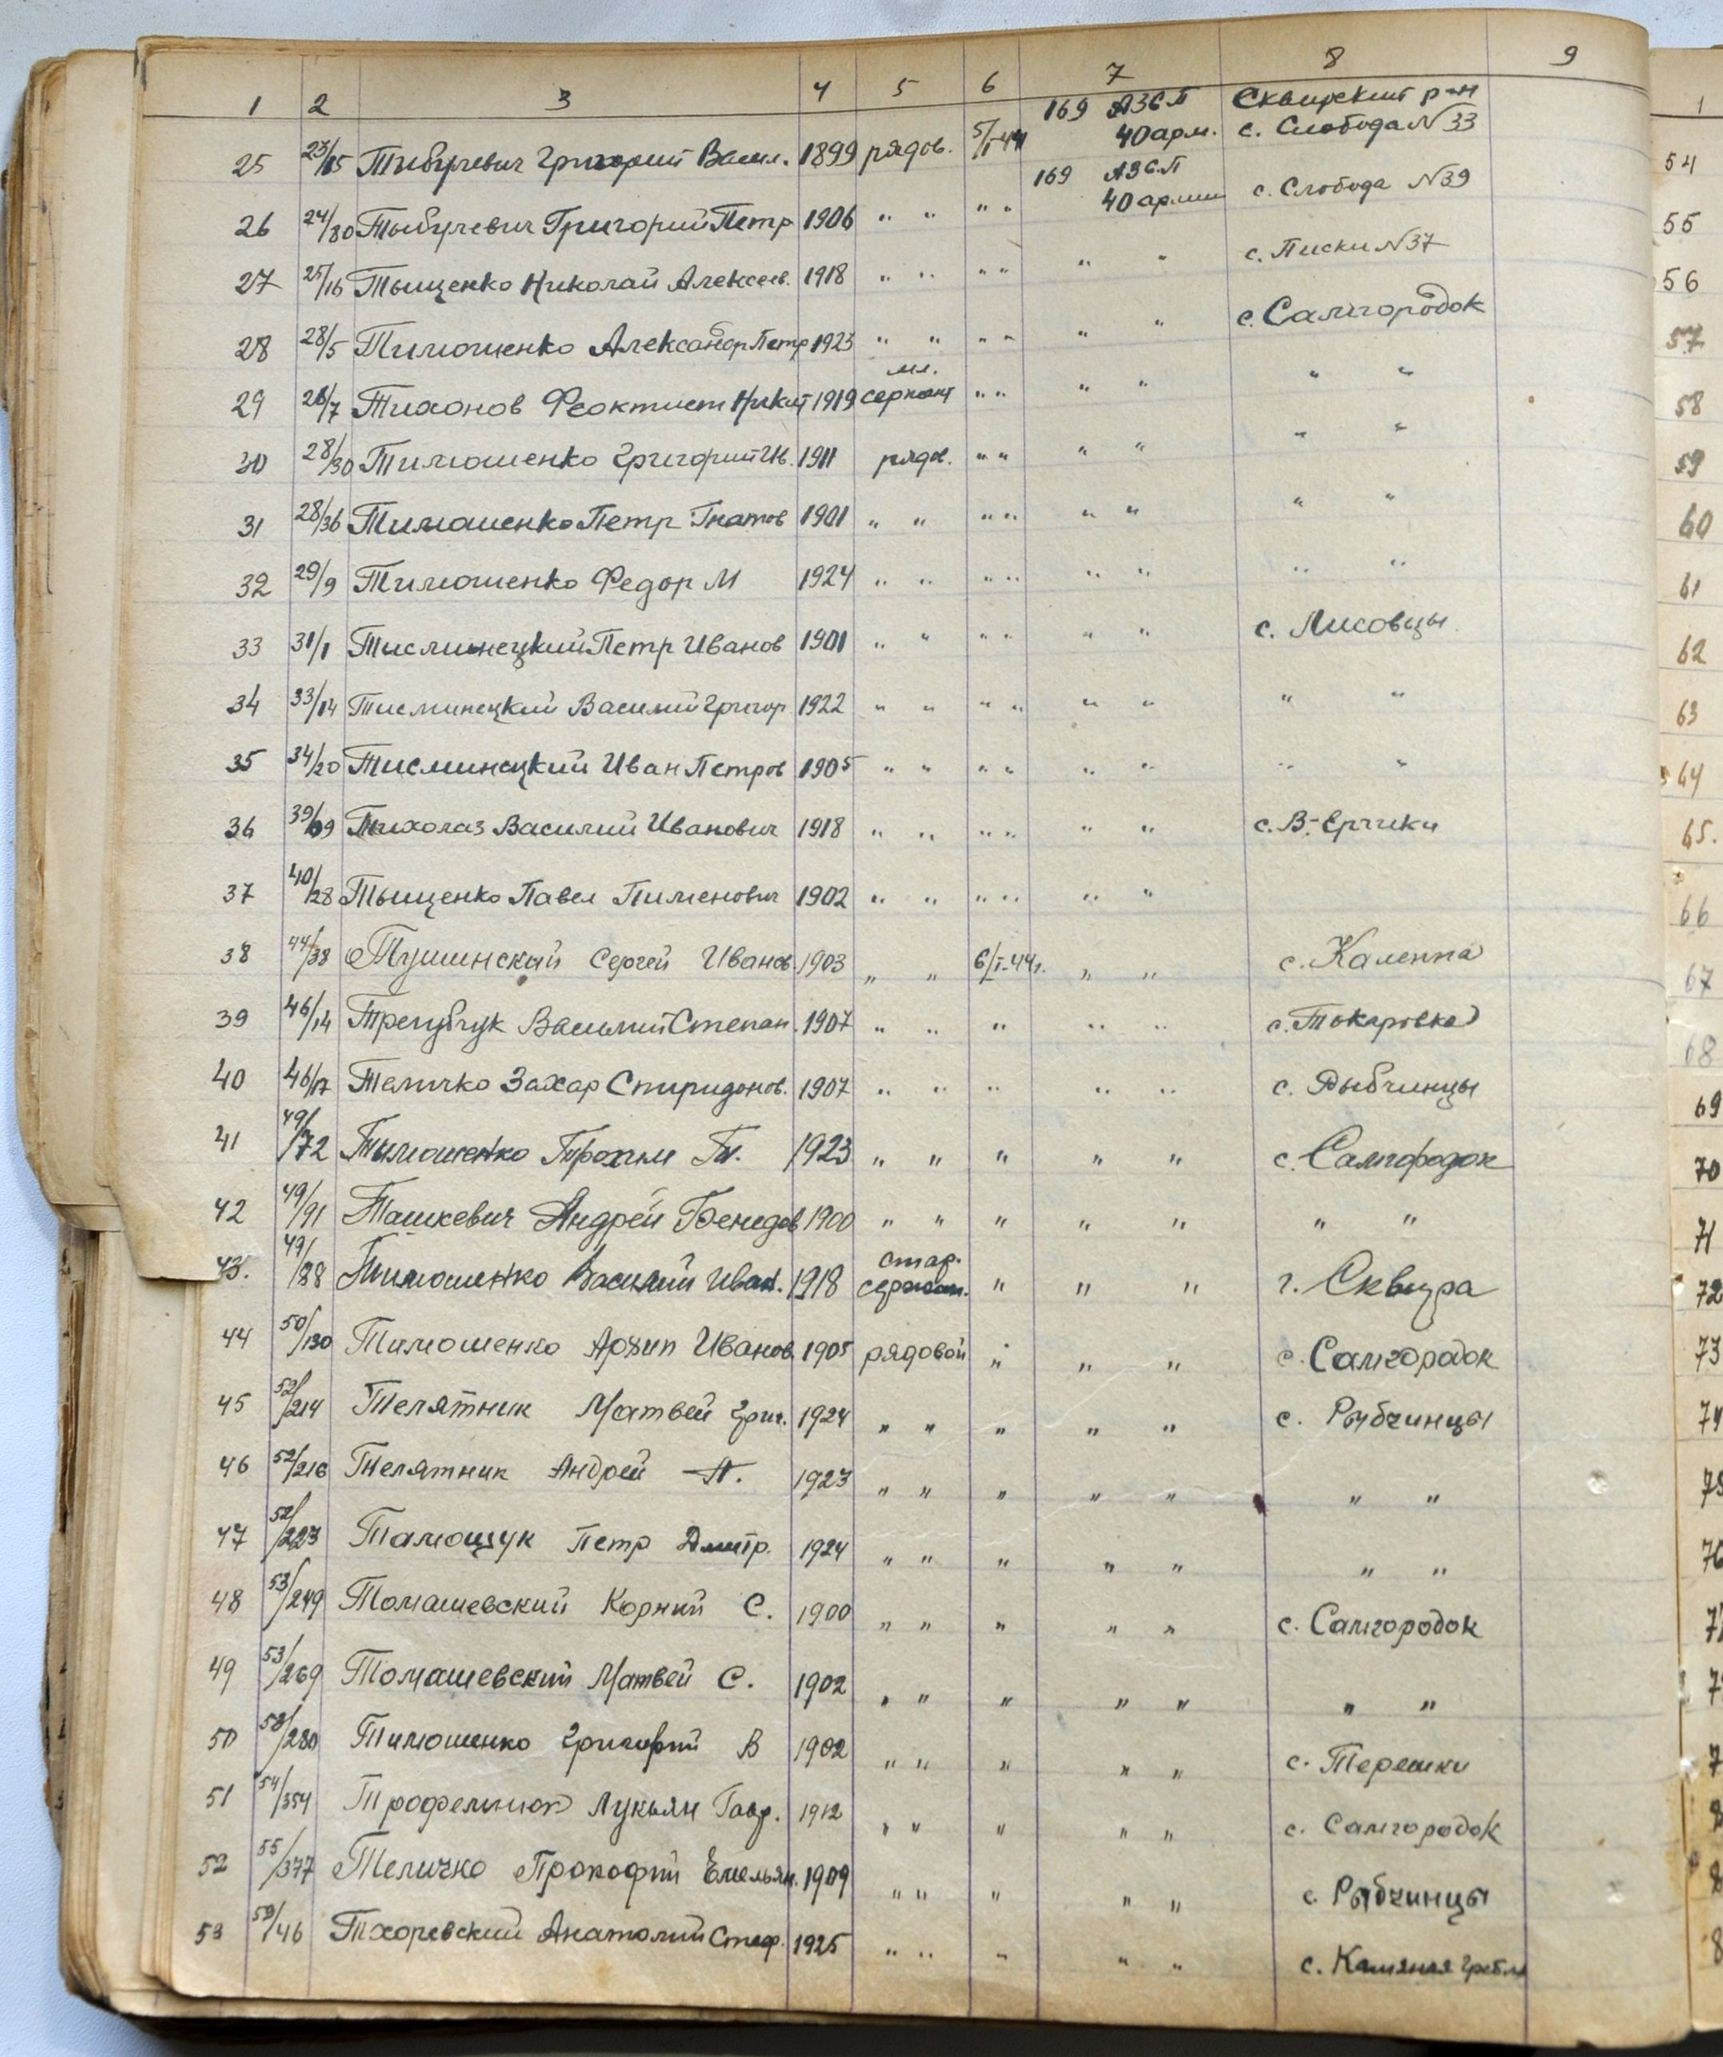 1 2 3 4 5 6 7 8 9
25 23/15 Тибулевич Григорий Васил. 1899 рядов. 5/I-44 169 АЗСП 40 арм. Сквирский р-н с. Слобода N 33
26 24/80 Тыбулевич Григорий Петр 1906 " " " " 169 АЗСП 40 армии с. Слобода N 39
27 25/16 Тыщенко Николай Алексеев. 1918 " " " " " " с. Писки N 37
28 28/5 Тимошенко Александр Петр 1923 " " " " " " с. Самгородок
29 28/7 Тихонов Феоктист Никит 1919 мл. сержант " " " " " "
30 28/30 Тимошенко Григорий Ив. 1911 рядов. " " " " " "
31 28/36 Тимошенко Петр Гнатов 1901 " " " " " " " "
32 29/9 Тимошенко Федор М 1924 " " " " " " " "
33 31/1 Тисминецкий Петр Иванов 1901 " " " " " " с. Лисовцы
34 33/14 Тисминецкий Василий Григор 1922 " " " " " " " "
35 34/20 Тисминецкий Иван Петров 1905 " " " " " " " "
36 39/09 Тихолаз Василий Иванович 1918 " " " " " " с. В-Ерчики
37 40/28 Тыщенко Павел Пименович 1902 " " " " " "
38 44/38 Тушинский Сергей Иванов 1903 " " 6/I-44г. " " с. Каленна
39 46/14 Трегубчук Василий Степан. 1907 " " " " " с. Токаровка
40 46/17 Теличко Захар Спиридонов. 1907 " " " " " с. Рыбчинцы
41 49/72 Тымошенко Трохим Т. 1923 " " " " " с. Самгородок
42 49/91 Ташкевич Андрей Бенедов 1900 " " " " " " "
43. 49/88 Тимошенко Василий Иван. 1918 стар. сержан. " " " г. Сквира
44 50/130 Тимошенко Архип Иванов 1905 рядовой " " " с. Самгородок
45 52/214 Телятник Матвей Григ. 1924 " " " " " с. Рыбчинцы
46 52/216 Телятник Андрей П. 1923 " " " " " " "
47 52/223 Тамощук Петр Дмитр. 1924 " " " " " " "
48 53/249 Томашевский Корний С. 1900 " " " " " с. Самгородок
49 53/269 Томашевский Матвей С. 1902 " " " " " " "
50 53/280 Тимошенко Григорий В 1902 " " " " " с. Терешки
51 54/354 Трофемнюк Лукьян Гавр. 1912 " " " " " с. Самгородок
52 55/377 Теличко Прокофий Емельян. 1909 " " " " " с. Рыбчинцы
53 59/46 Тхоревский Анатолий Стеф. 1925 " " " " " с. Камяная Гребля
1
54
55
56
57
58
59
60
61
62
63
64
65.
66
67
68
69
70
71
72
73
74